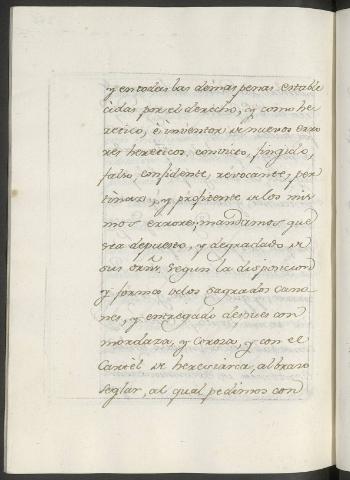 y en todas las demas penas estable
cidas por el derecho, y como he
retico, é inventor de nuevos erro
res hereticos, convicto, fingido,
falso, confidente, revocante, per
tinaz, y profitente de los mis
mos errores, mandamos que
sea depuesto, y degradado de
sus orñs. segun la disposicion
y forma de los sagrados Cano
nes, y entregado despues con
mordaza, y coroza, y con el
Cartel de heresiarca, al brazo
seglar, al qual pedimos con